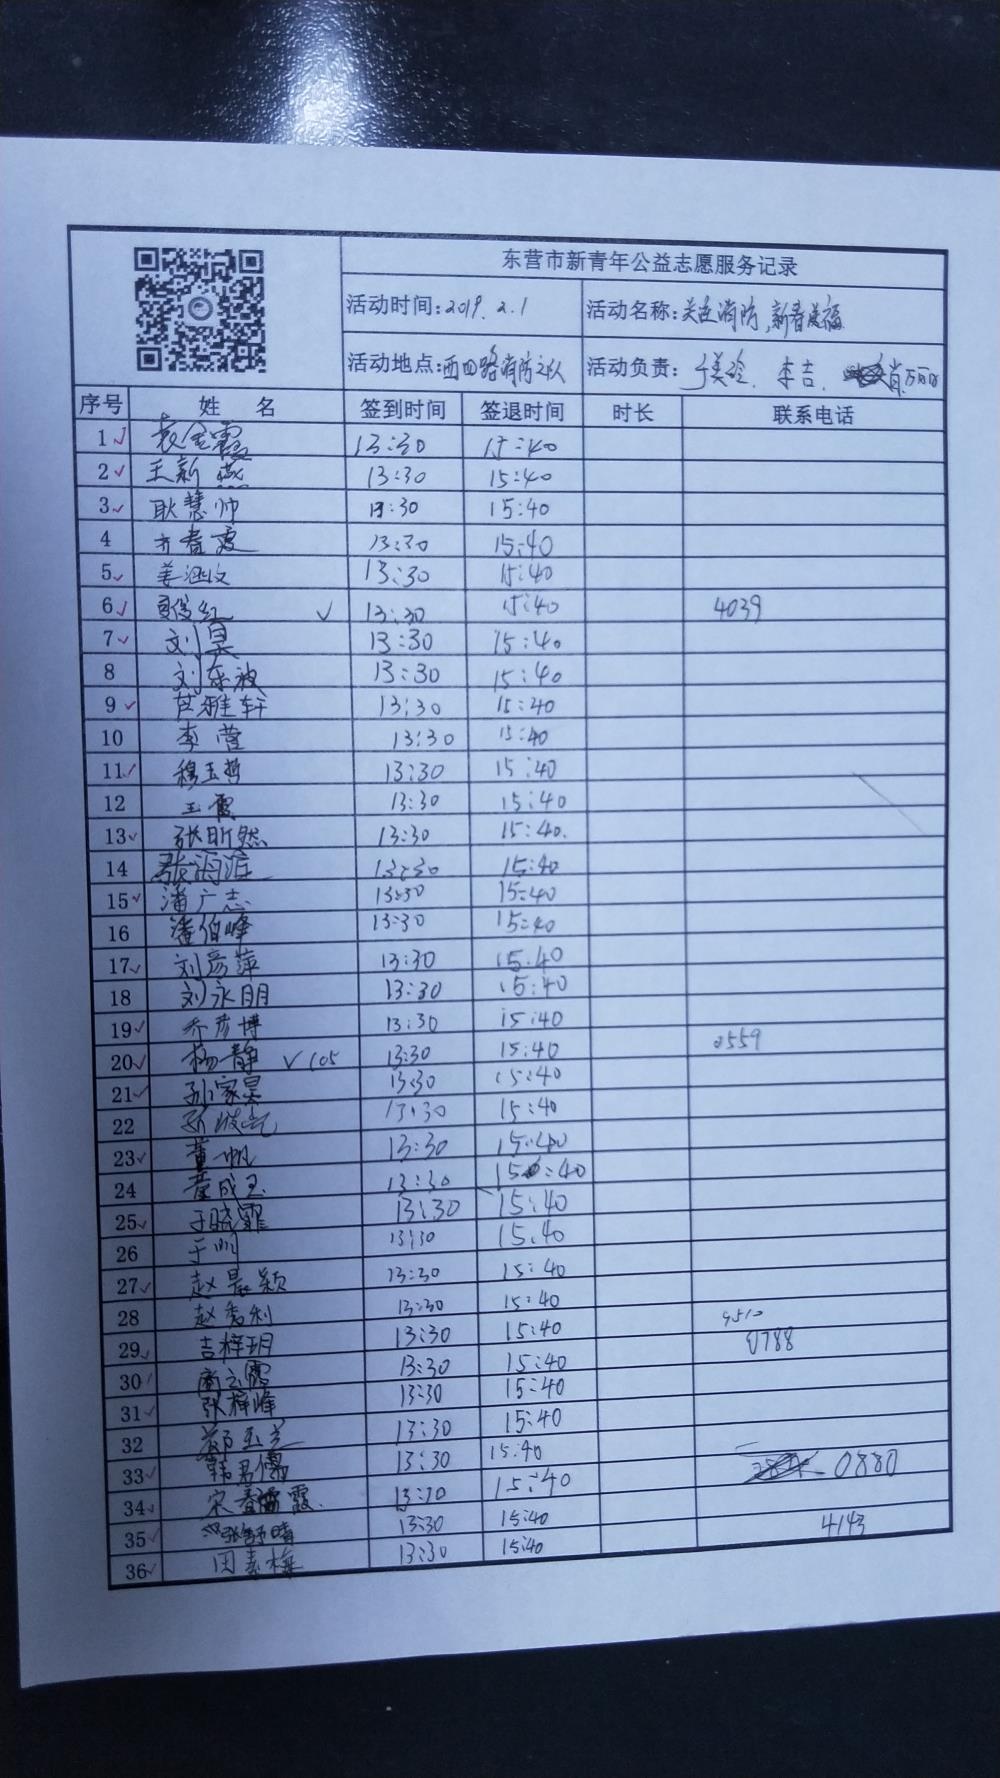 东营市新青年公益志愿服务记录
活动时间:2019.2.1 活动名称:关连消防、新春送福
活动地点:西四路消防支队 活动负责:于美玲、李吉、肖丽
序号 姓名 签到时间 签退时间 时长 联系电话
1 ✓ 袁金霞 13:30 15:40
2 ✓ 王新燕 13:30 15:40
3 ✓ 耿慧帅 13:30 15:40
4 齐春霞 13:30 15:40
5 ✓ 姜涵文 13:30 15:40
6 ✓ 红 ✓ 13:30 15:40 4039
7 ✓ 刘昊 13:30 15:40
8 刘东波 13:30 15:40
9 ✓ 芦雅轩 13:30 15:40
10 李莹 13:30 15:40
11 ✓ 穆玉哲 13:30 15:40
12 王霞 13:30 15:40
13 ✓ 张昕然 13:30 15:40.
14 张海滨 13:30 15:40
15 ✓ 潘广志 13:30 15:40
16 潘伯峰 13:30 15:40
17 ✓ 刘彦萍 13:30 15:40
18 刘永明 13:30 15:40
19 ✓ 乔彦博 13:30 15:40
20 ✓ 杨静 ✓105 13:30 15:40 2559
21 ✓ 孙家昊 13:30 15:40
22 孙 13:30 15:40
23 ✓ 董帆 13:30 15:40
24 董成玉 13:30 15:40
25 ✓ 于晓霏 13:30 15:40
26 于帅 13:30 15:40
27 ✓ 赵晨颖 13:30 15:40
28 赵秀利 13:30 15:40 9510
29 ✓ 吉梓玥 13:30 15:40 0788
30 商立霞 13:30 15:40
31 ✓ 张梓峰 13:30 15:40
32 郭玉兰 13:30 15:40
33 ✓ 韩君儒 13:30 15:40 0880
34 ✓ 宋春霞 13:30 15:40
35 ✓ 张舒晴 13:30 15:40 4143
36 ✓ 田素梅 13:30 15:40